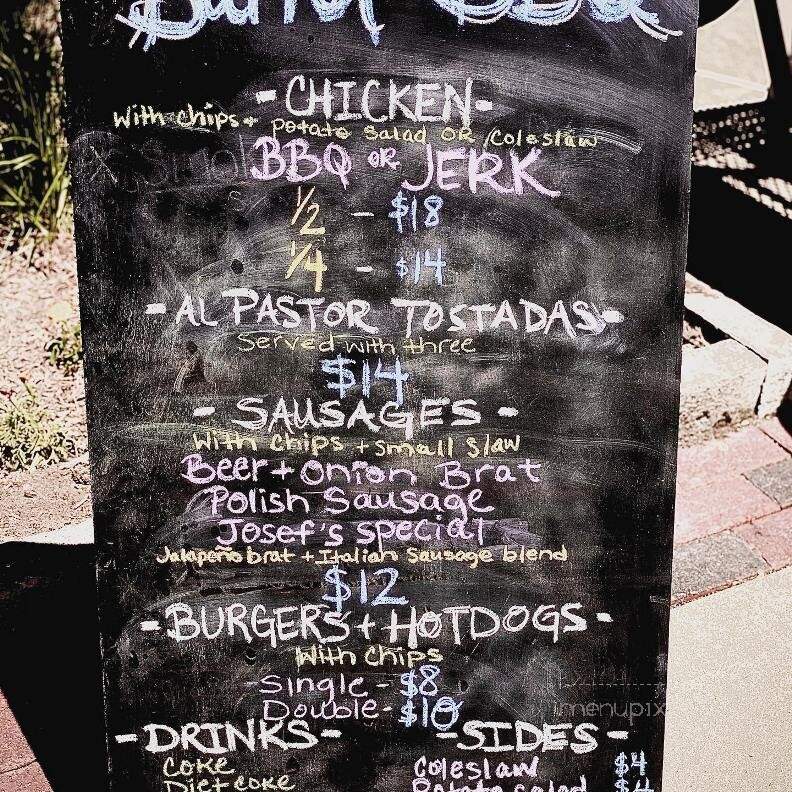 BBQ
- CHICKEN -
With chips + potato salad OR /Coleslaw
BBQ OR JERK
1/2 - $18
1/4 - $14
- AL PASTOR TOSTADAS -
Served with three
$14
- SAUSAGES -
With chips + small slaw
Beer + Onion Brat
Polish Sausage
Josef's special
Jalapeño brat + Italian Sausage blend
$12
- BURGERS + HOTDOGS -
With Chips
Single - $8
Double - $10
menupix
- DRINKS -
Coke
Diet coke
- SIDES -
Coleslaw $4
Potato salad $4